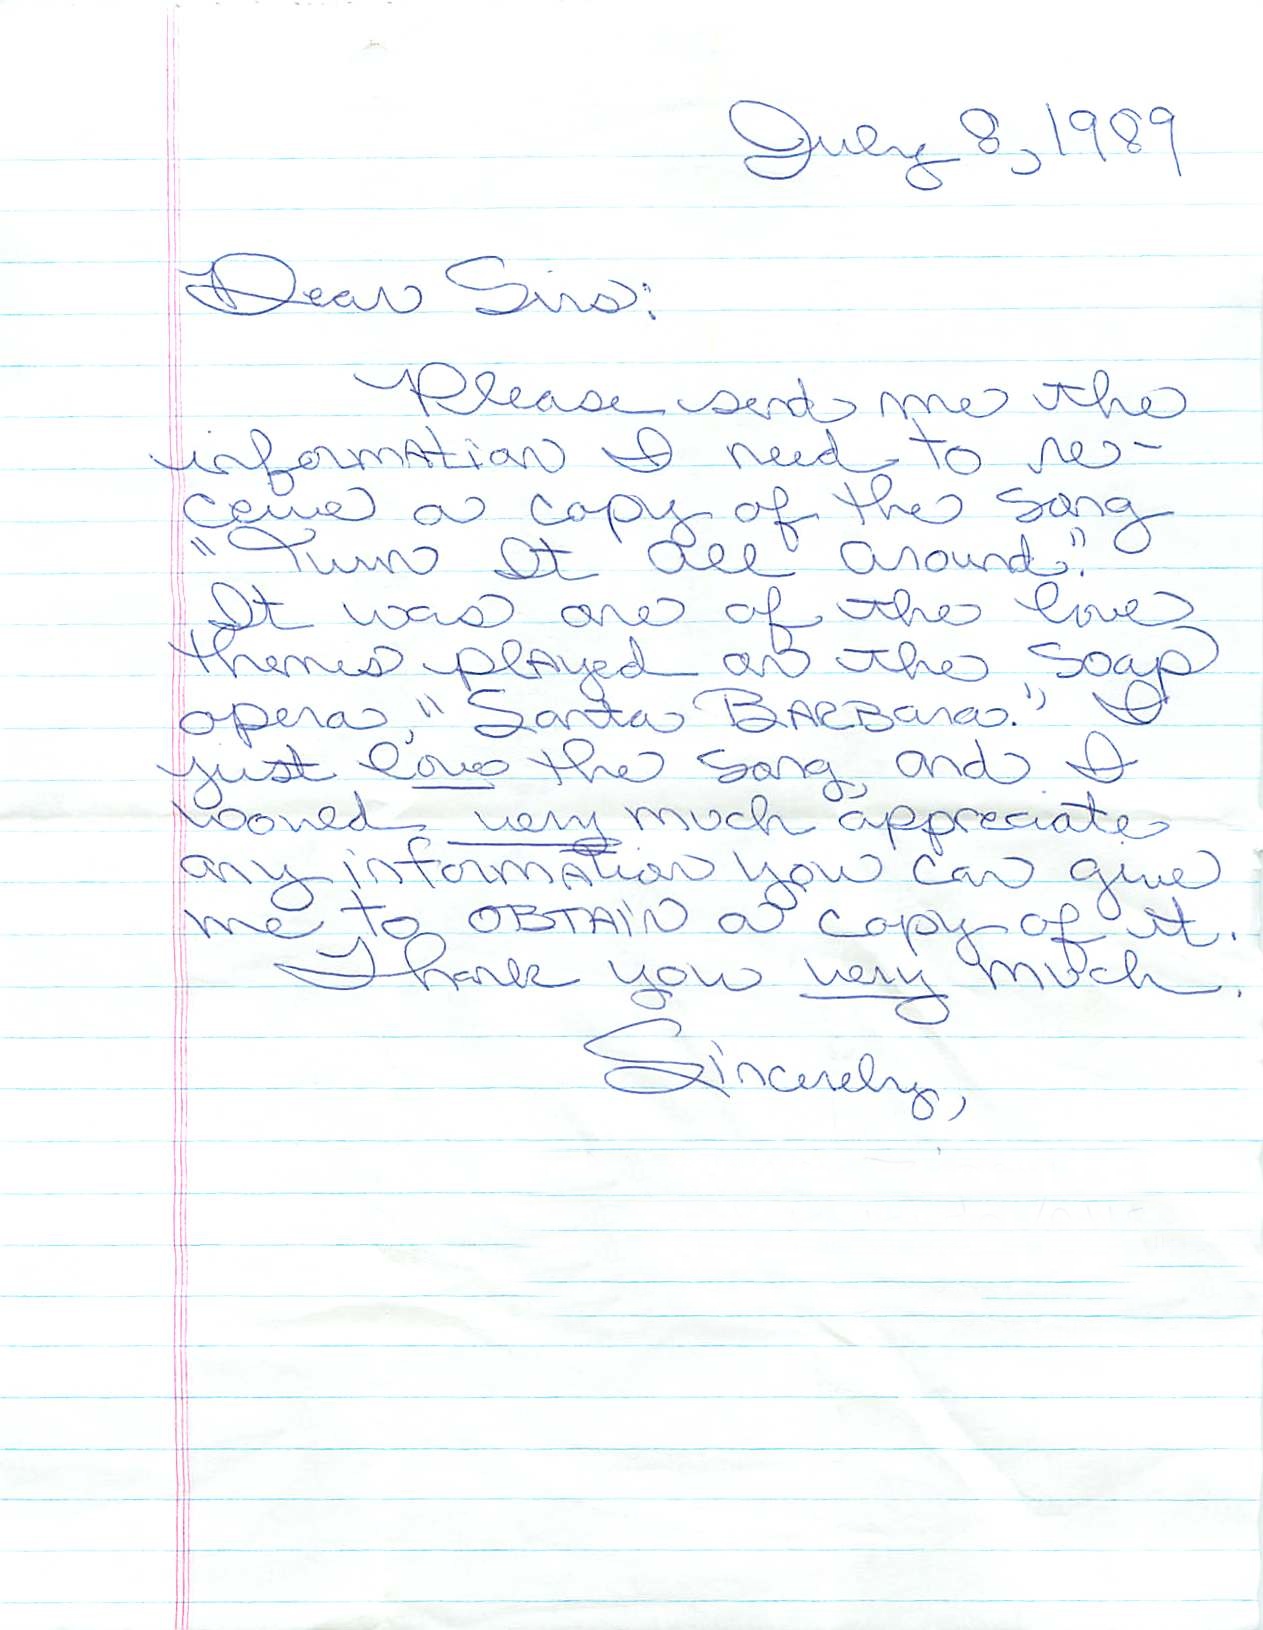 July 8, 1989
Dear Sirs:
Please send me the
information I need to re-
ceive a copy of the song
"Turn It all around."
It was one of the love
themes played on the soap
opera, "Santa BARBara." I
just love the song, and I
would very much appreciate
any information you can give
me to OBTAIN a copy of it.
Thank you very much.
Sincerely,